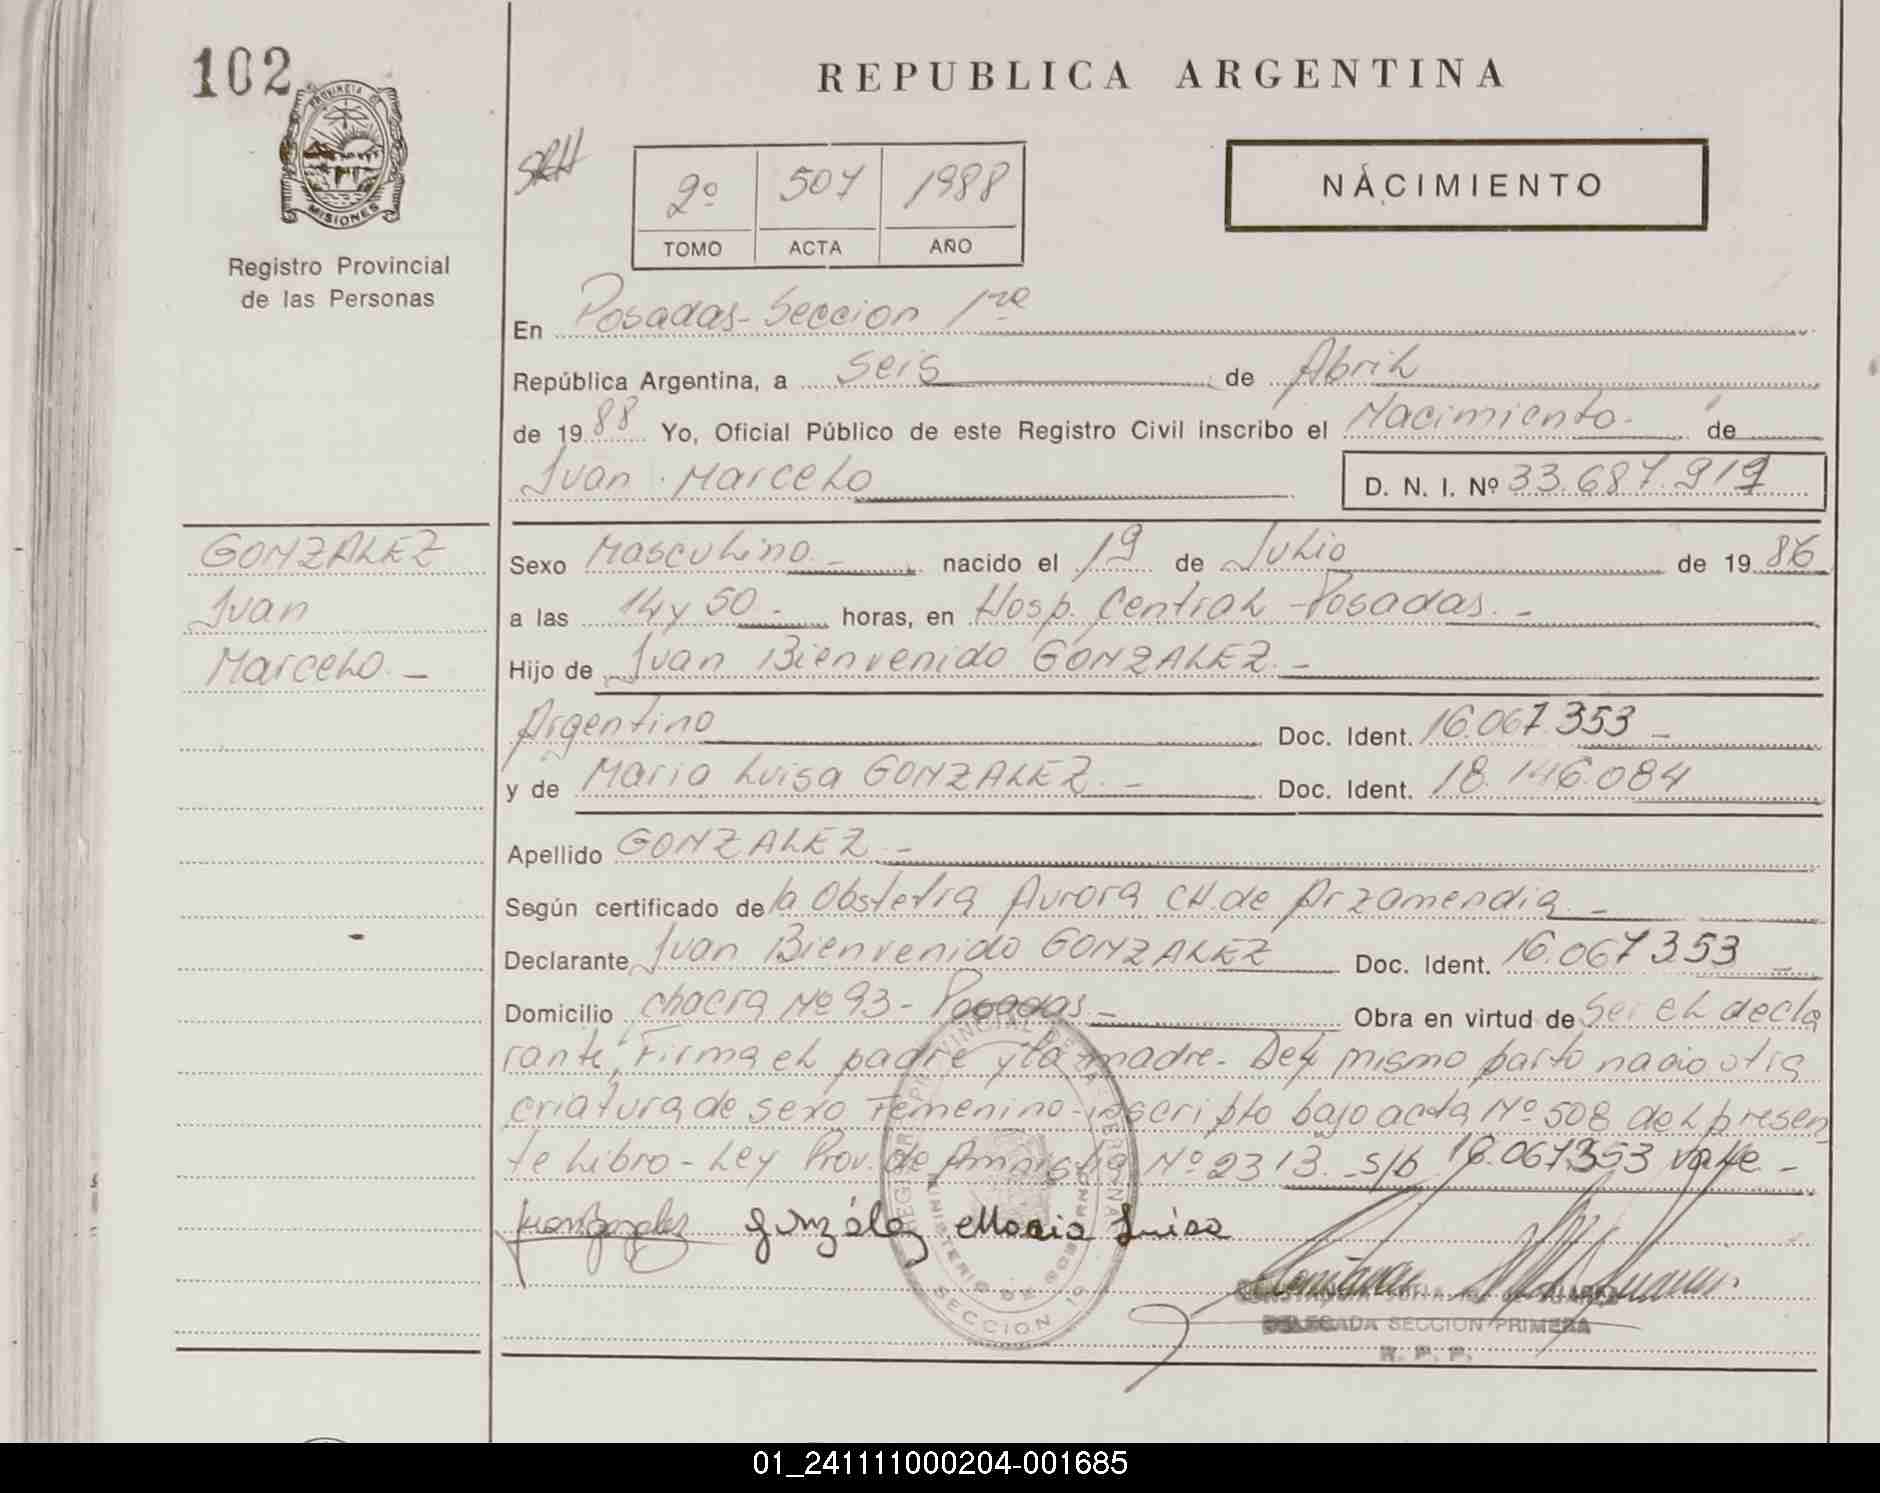 102
REPUBLICA ARGENTINA
PROVINCIA DE
MISIONES
SRH
2º 507 1988
TOMO ACTA AÑO
NACIMIENTO
Registro Provincial
de las Personas
En Posadas - Seccion 1ra
República Argentina, a seis de Abril
de 1988 Yo, Oficial Público de este Registro Civil inscribo el Nacimiento. de
Juan Marcelo D. N. I. Nº 33.687.919
GONZALEZ
Juan
Marcelo. -
Sexo Masculino. - nacido el 19 de Julio de 1986
a las 14 y 50. - horas, en Hosp. Central - Posadas. -
Hijo de Juan Bienvenido GONZALEZ. -
Argentino Doc. Ident. 16.067.353 -
y de Maria Luisa GONZALEZ. - Doc. Ident. 18.146.084
Apellido GONZALEZ. -
Según certificado de la Obstetra Aurora CH. de Arzamendia. -
Declarante Juan Bienvenido GONZALEZ Doc. Ident. 16.067353 -
Domicilio chacra Nº 93 - Posadas - Obra en virtud de Ser el decla
rante, Firma el padre y la madre - Del mismo parto nacio otra
criatura de sexo Femenino - inscripto bajo acta Nº 508 del presen
te Libro - Ley Prov. de Amnistia Nº 2313. s/b 16.067.353 vale. -
González Maria Luisa
REGISTRO PROVINCIAL DE LAS PERSONAS
MINISTERIO DE GOBIERNO
SECCION 1ª
DELEGADA SECCION PRIMERA
R. P. P.
01_241111000204-001685